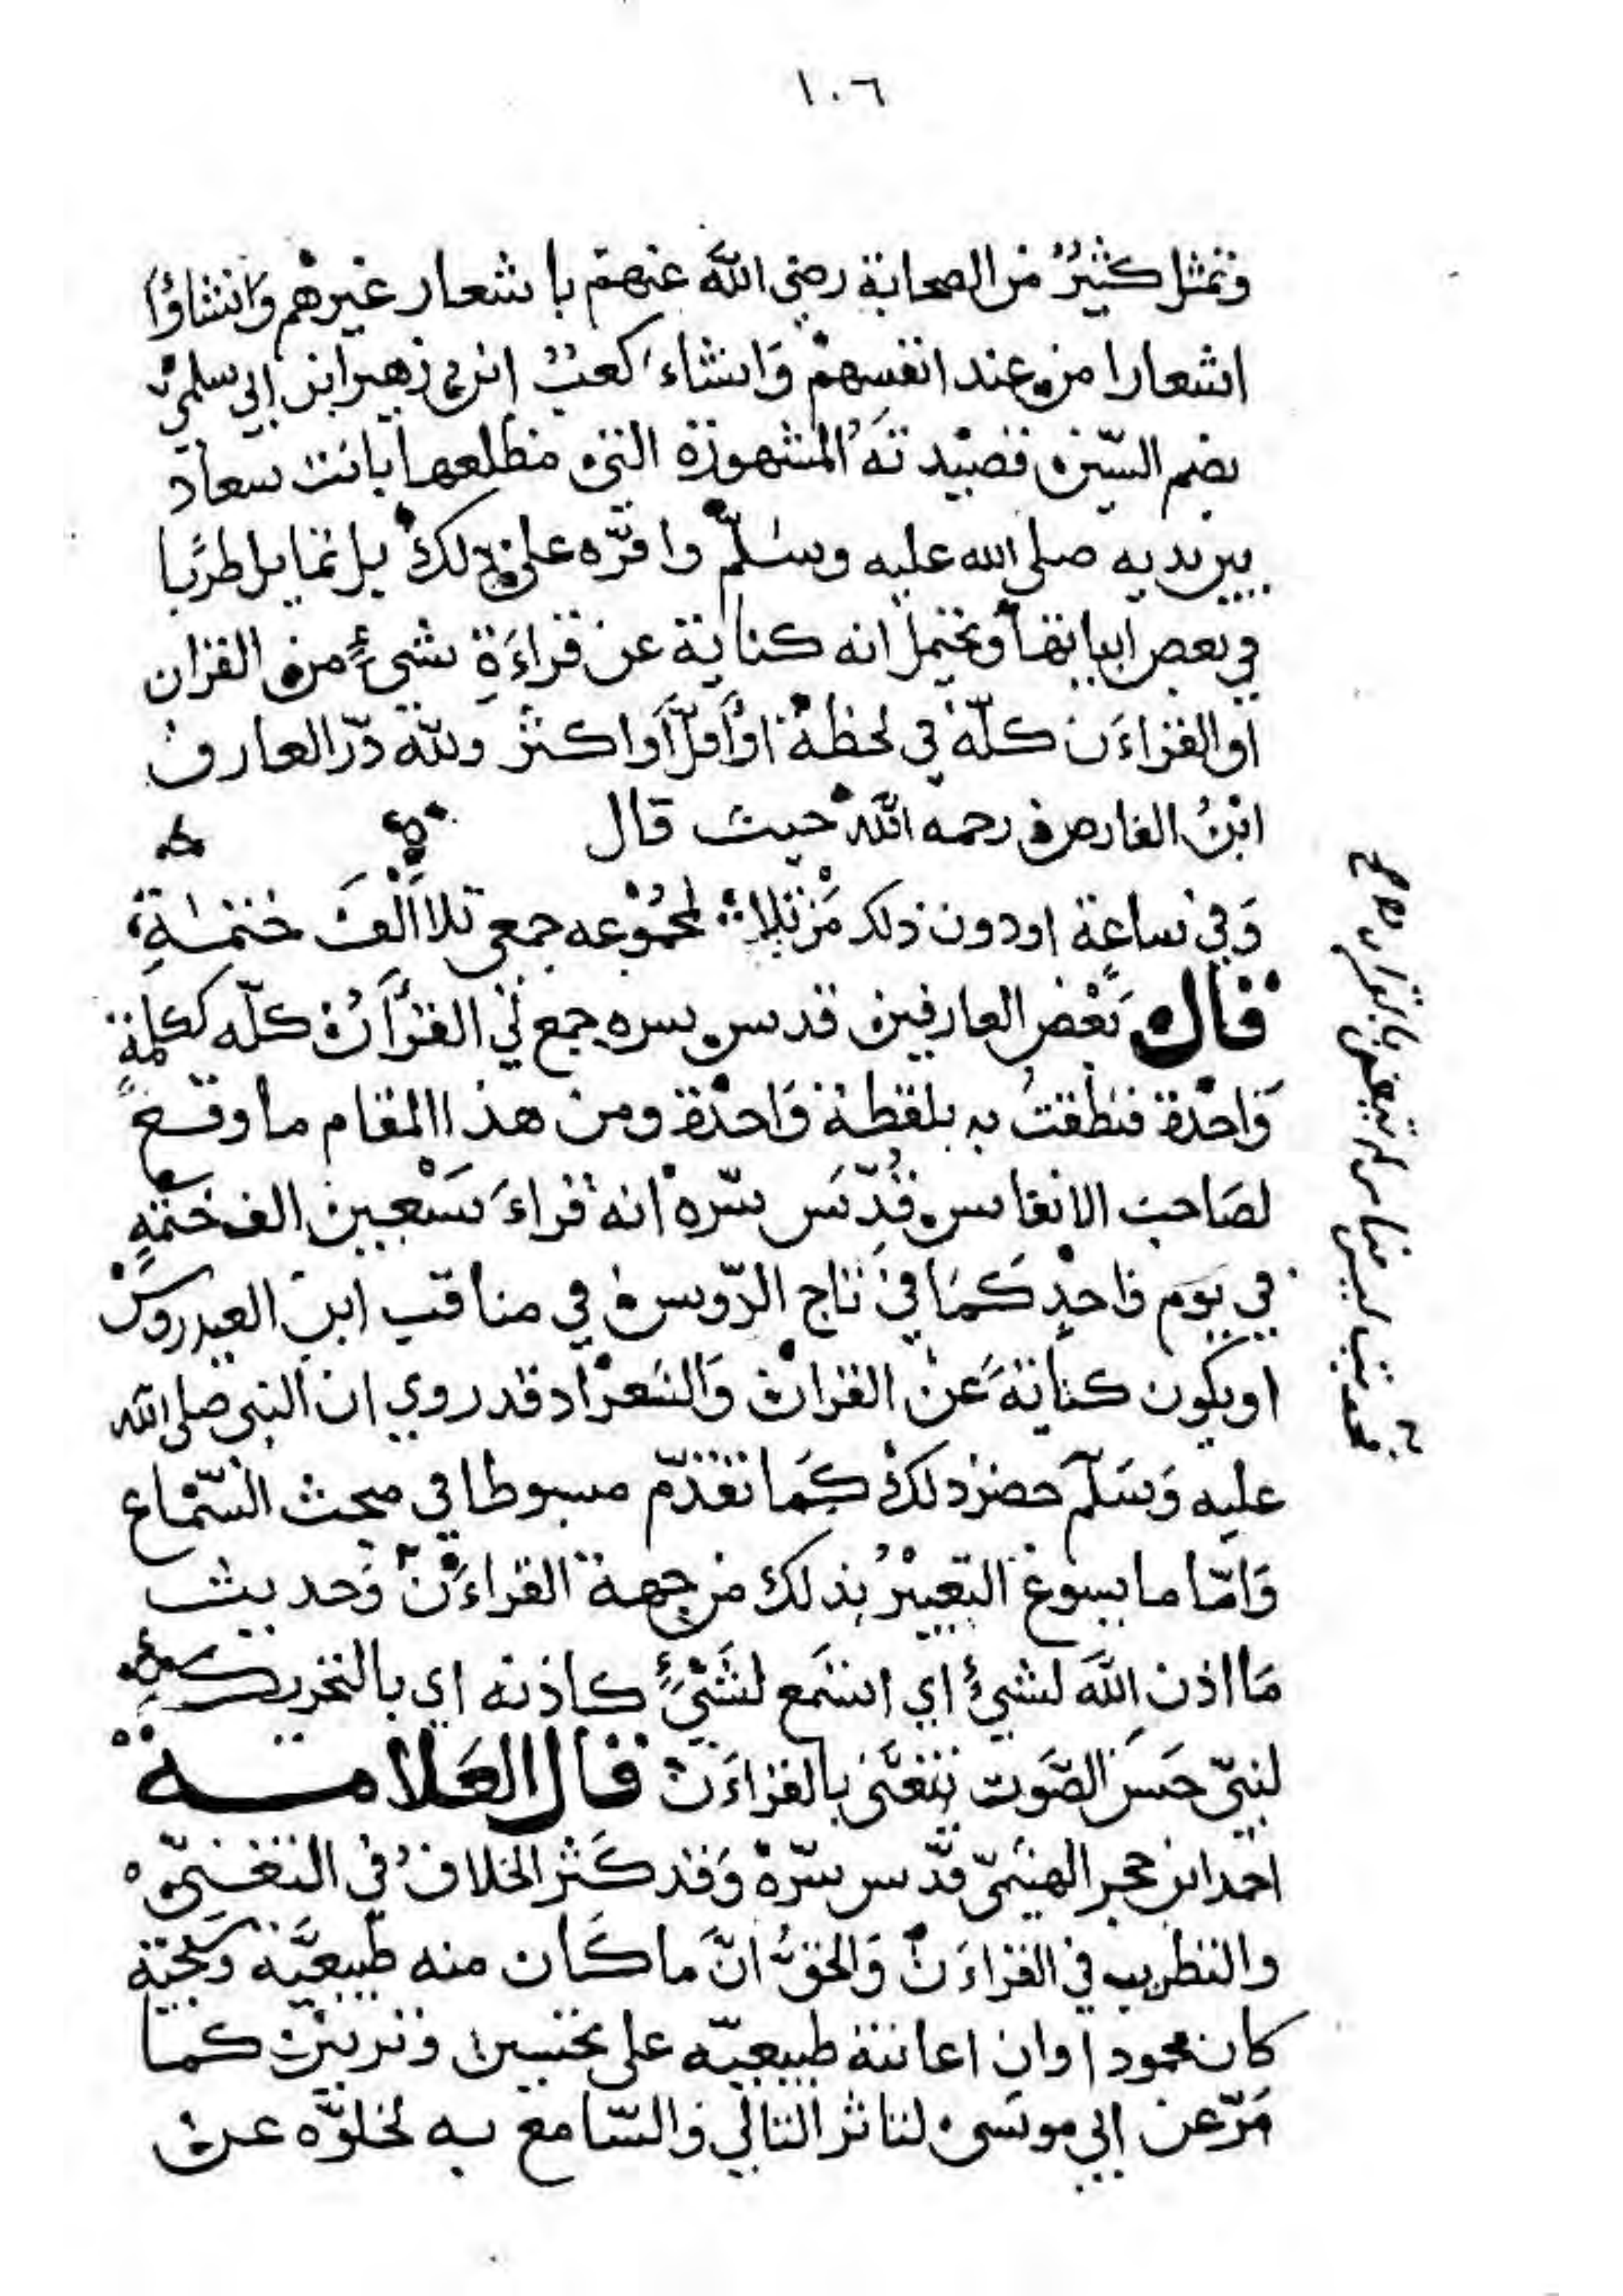 ١٠٦
وتمثل كثيرٌ من الصحابة رضي اللّه عنهم باشعار غيرهم وَانشاؤا
اشعارا من عند انفسهم وَانشاء كعبُ ابن زهير ابن ابي سلمى
بضم السّين قصيدتَهُ المشهورة التي مطلعها بانت سعاد
بين يديه صلى الله عليه وسلّم واقرّه على ذلك بل تمايل طربًا
في بعض ابياتها ويحتمل انه كناية عن قراءَةِ شيءٍ من القران
او القراءَن كلّه في لحظة اوأقلّ أواكثر وللّه درّ العارف
ابنُ الفارض رحمه اللّه حيث قال
وَفي ساعة اودون ذلك مَن تلا لمجمُوعه جمعي تلا الفَ ختمةٍ
قال بَعْض العارفين قدس سره جمع لي القرأن كلّه ككلمةٍ
وَاحدة فنطقتُ به بلفظة وَاحدة ومن هذا المقام ما وقع
لصَاحب الانفاس قُدِّسَ سرّه انه قراءَ سَبْعين الف ختمةٍ
في يَوم وَاحدٍ كَمَا في تاج الرّوس في مناقب ابن العيدروس
اويكون كنايةً عن القران وَالشعر اذ قد روي ان النبي صلى اللّه
عليه وَسَلّم حضر ذلك كَما تقدّم مبسوطا في مبحث السّماع
وَامّا ما يسوغ التعبيرُ بذلك من جهة القراءَن وَحديث
مَا اذن اللّهَ لشيءٍ اي استَمع لشَيْءٍ كاذنه اي بالتحريك
لنبيّ حسَن الصّوت يتغنّى بالقراءَن قال العَلامة
احمد ابن حجر الهيتميّ قدّس سرّه وَقد كَثر الخلافُ في التغنّي
والتطريب في القراءَن وَالحقُّ انّ ما كَان منه طبيعيَّة وسجيّة
كان محمودا وان اعانته طبيعيّه على تحسين وتزيين كما
مَرّ عن ابي موسَى لتاثر التالي والسّامع به لخلوّه عن